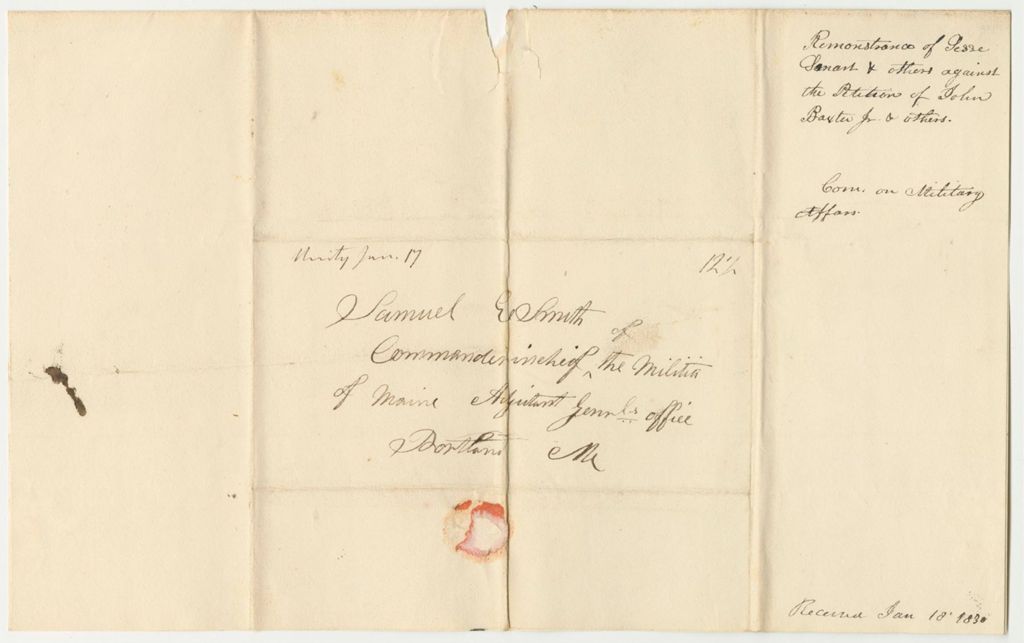 Remonstrance of Jesse
Smart & others against
the Petition of John
Baxter Jr. & others.
Com. on Military
Affairs.
Unity Jan. 17
12½
Samuel E Smith
Commanderincheif of the Militia
of Maine Adjutant Genrls office
Portland Me
Received Jan 18 1830